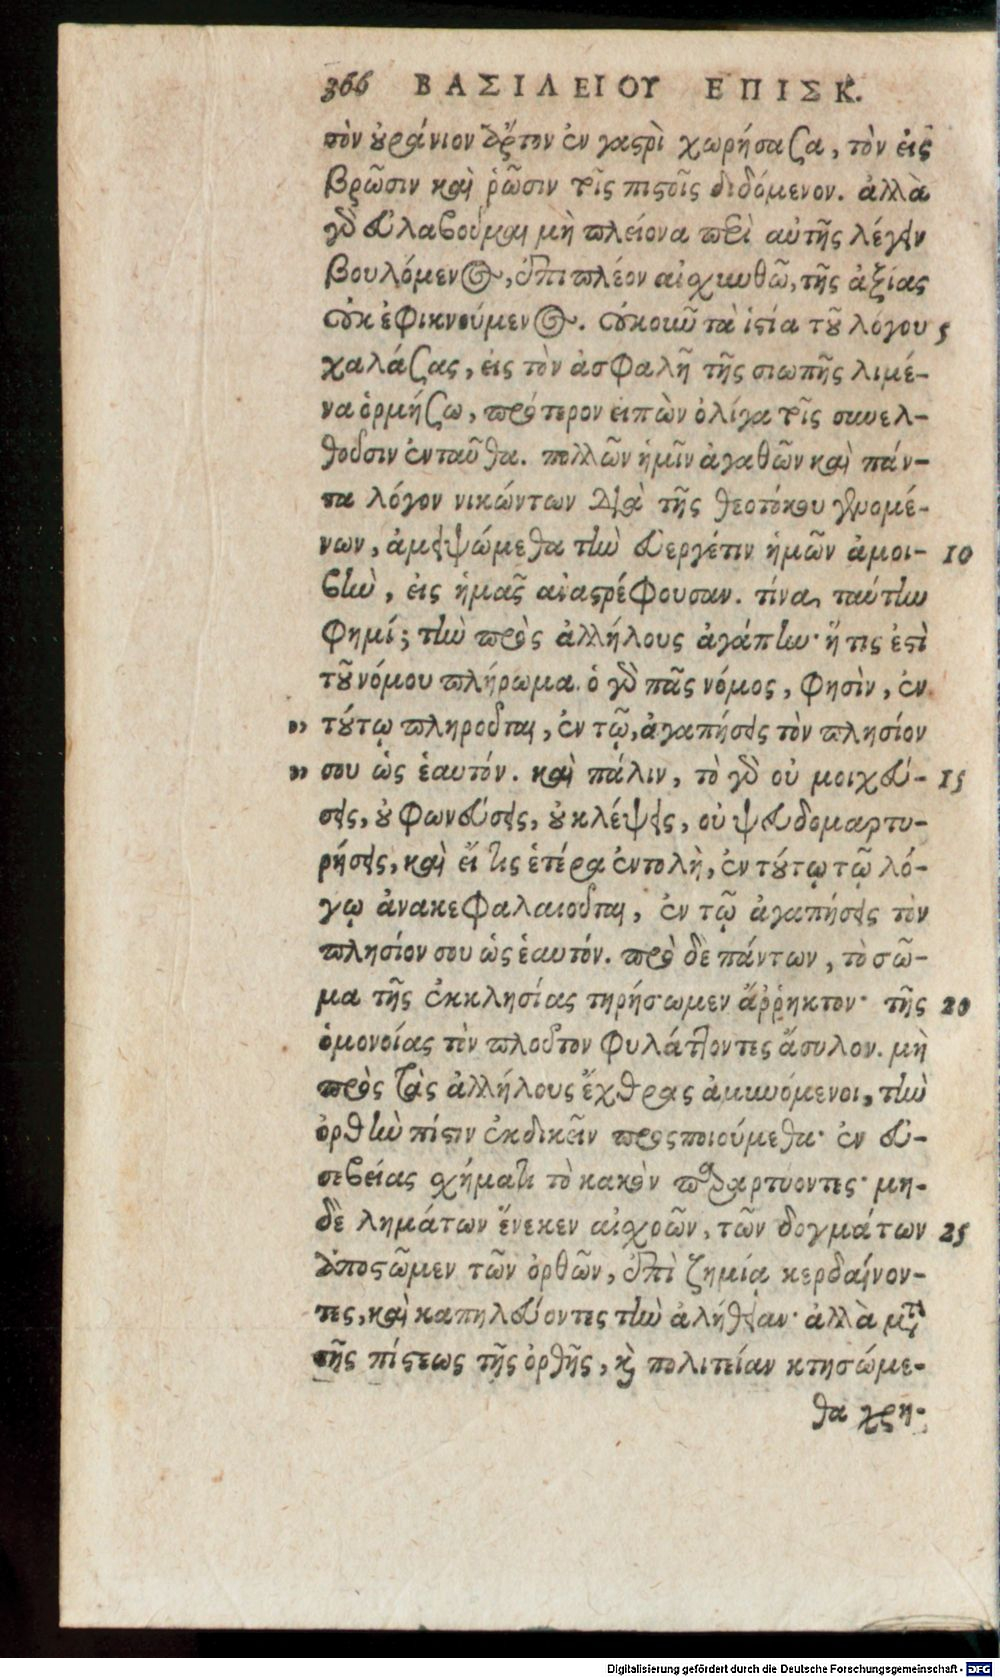 366 ΒΑΣΙΛΕΙΟΥ ΕΠΙΣΚ.
τὸν οὐράνιον ἄρτον ἐν γαστρὶ χωρήσασα, τὸν εἰς
βρῶσιν καὶ ῥῶσιν τοῖς πιστοῖς διδόμενον. ἀλλὰ
γὰρ εὐλαβοῦμαι μὴ πλείονα περὶ αὐτῆς λέγειν
βουλόμενος, ἐπιπλέον αἰσχυνθῶ, τῆς ἀξίας
οὐκ ἐφικνούμενος. οὐκοῦν τὰ ἱστία τοῦ λόγου 5
χαλάσας, εἰς τὸν ἀσφαλῆ τῆς σιωπῆς λιμέ-
να ὁρμήσω, πρότερον εἰπὼν ὀλίγα τοῖς συνελ-
θοῦσιν ἐνταῦθα. πολλῶν ἡμῖν ἀγαθῶν καὶ πάν-
τα λόγον νικώντων διὰ τῆς θεοτόκου γενομέ-
νων, ἀμειψώμεθα τὴν εὐεργέτιν ἡμῶν ἀμοι- 10
βὴν, εἰς ἡμᾶς ἀναστρέφουσαν. τίνα ταύτην
φημί; τὴν πρὸς ἀλλήλους ἀγάπην· ἥ τις ἐστὶ
τοῦ νόμου πλήρωμα. ὁ γὰρ πᾶς νόμος, φησὶν, ἐν
" τούτῳ πληροῦται, ἐν τῷ, ἀγαπήσεις τὸν πλησίον
" σου ὡς ἑαυτόν. καὶ πάλιν, τὸ γὰρ οὐ μοιχεύ- 15
σεις, οὐ φωνεύσεις, οὐ κλέψεις, οὐ ψευδομαρτυ-
ρήσεις, καὶ εἴ τις ἑτέρα ἐντολὴ, ἐν τούτῳ τῷ λό-
γῳ ἀνακεφαλαιοῦται, ἐν τῷ ἀγαπήσεις τὸν
πλησίον σου ὡς ἑαυτόν. πρὸ δὲ πάντων, τὸ σῶ-
μα τῆς ἐκκλησίας τηρήσωμεν ἄῤῥηκτον· τῆς 20
ὁμονοίας τὸν πλοῦτον φυλάττοντες ἄσυλον. μὴ
πρὸς τὰς ἀλλήλους ἔχθρας ἀμυνόμενοι, τὴν
ὀρθὴν πίστιν ἐκδικεῖν προσποιούμεθα· ἐν εὐ-
σεβείας σχήματι τὸ κακὸν παραρτυοντες· μη-
δὲ λημμάτων ἕνεκεν αἰσχρῶν, τῶν δογμάτων 25
ἀποστῶμεν τῶν ὀρθῶν, ἐπὶ ζημίᾳ κερδαίνον-
τες, καὶ καπηλεύοντες τὴν ἀλήθειαν· ἀλλὰ μετὰ
τῆς πίστεως τῆς ὀρθῆς, καὶ πολιτείαν κτησώμε-
θα χρη-
Digitalisierung gefördert durch die Deutsche Forschungsgemeinschaft - DFG